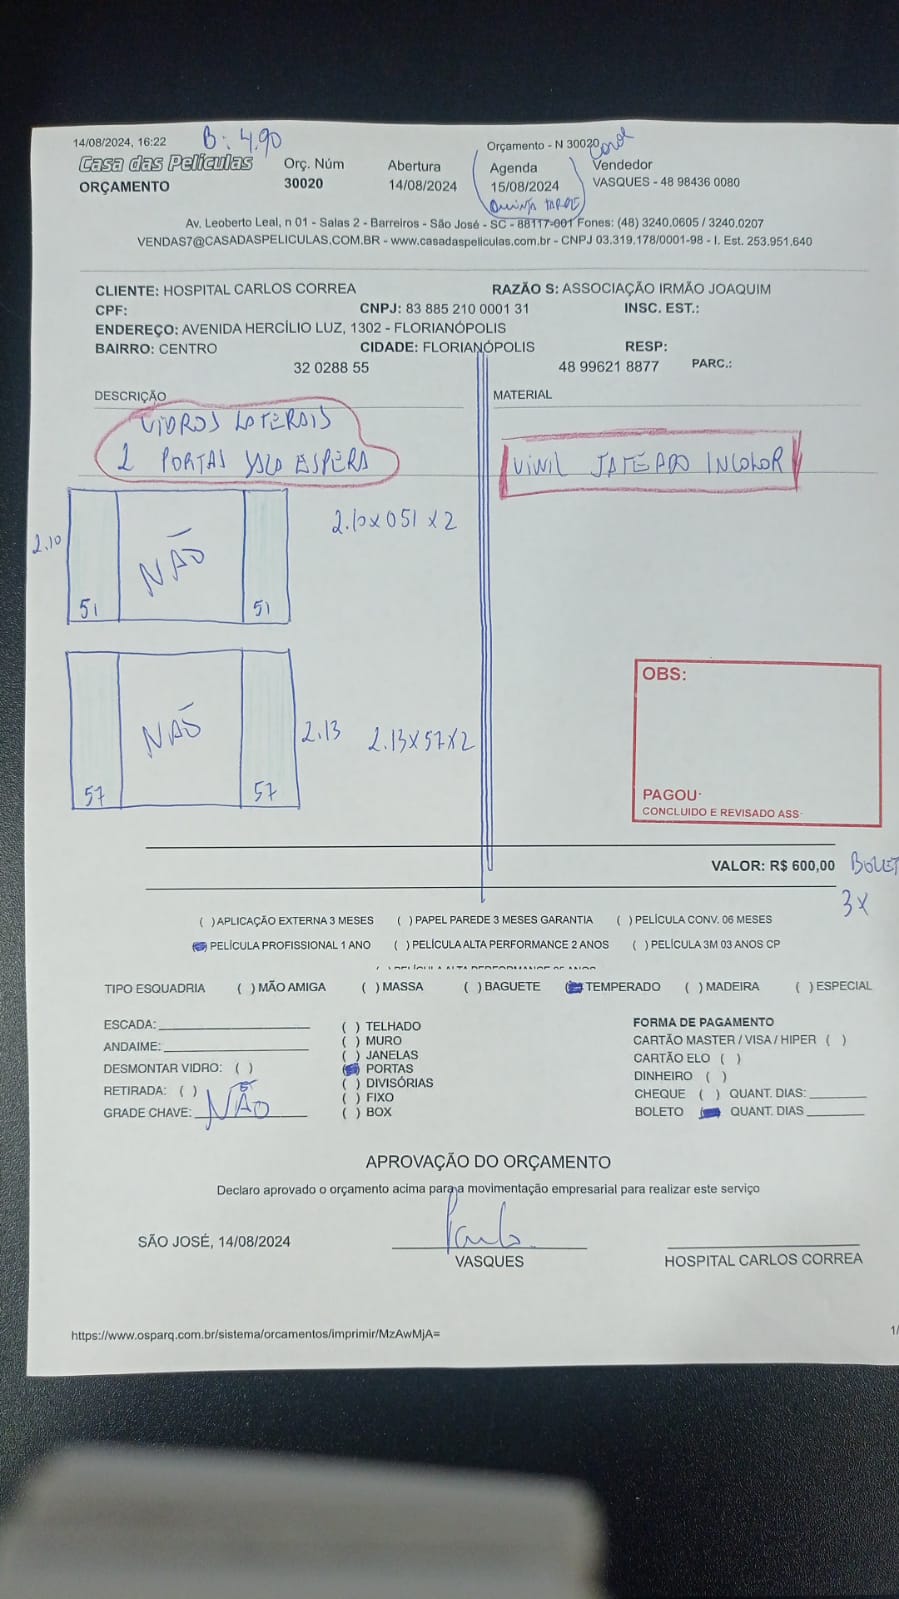 14/08/2024, 16:22
B: 4.90
Orçamento - N 30020
Casa das Películas
ORÇAMENTO
Orç. Núm
30020
Abertura
14/08/2024
Agenda
15/08/2024
QUINTA TARDE
Vendedor
VASQUES - 48 98436 0080
Av. Leoberto Leal, n 01 - Salas 2 - Barreiros - São José - SC - 88117-001 Fones: (48) 3240.0605 / 3240.0207
VENDAS7@CASADASPELICULAS.COM.BR - www.casadaspeliculas.com.br - CNPJ 03.319.178/0001-98 - I. Est. 253.951.640
CLIENTE: HOSPITAL CARLOS CORREA RAZÃO S: ASSOCIAÇÃO IRMÃO JOAQUIM
CPF: CNPJ: 83 885 210 0001 31 INSC. EST.:
ENDEREÇO: AVENIDA HERCÍLIO LUZ, 1302 - FLORIANÓPOLIS
BAIRRO: CENTRO CIDADE: FLORIANÓPOLIS RESP:
32 0288 55 48 99621 8877 PARC.:
DESCRIÇÃO MATERIAL
VIDROS LATERAIS
2 PORTAS ESPERA
VINIL JATEADO INCOLOR
2.10 NÃO 51 51
2.10x051x2
NÃO 57 57 2.13
2.13x57x2
OBS:
PAGOU
CONCLUIDO E REVISADO ASS
VALOR: R$ 600,00 BOLET
3x
( ) APLICAÇÃO EXTERNA 3 MESES ( ) PAPEL PAREDE 3 MESES GARANTIA ( ) PELÍCULA CONV. 06 MESES
PELÍCULA PROFISSIONAL 1 ANO ( ) PELÍCULA ALTA PERFORMANCE 2 ANOS ( ) PELÍCULA 3M 03 ANOS CP
TIPO ESQUADRIA ( ) MÃO AMIGA ( ) MASSA ( ) BAGUETE TEMPERADO ( ) MADEIRA ( ) ESPECIAL
ESCADA:
ANDAIME:
DESMONTAR VIDRO: ( )
RETIRADA: ( )
GRADE CHAVE: NÃO
( ) TELHADO
( ) MURO
( ) JANELAS
PORTAS
( ) DIVISÓRIAS
( ) FIXO
( ) BOX
FORMA DE PAGAMENTO
CARTÃO MASTER / VISA / HIPER ( )
CARTÃO ELO ( )
DINHEIRO ( )
CHEQUE ( ) QUANT. DIAS:
BOLETO QUANT. DIAS
APROVAÇÃO DO ORÇAMENTO
Declaro aprovado o orçamento acima para a movimentação empresarial para realizar este serviço
SÃO JOSÉ, 14/08/2024
VASQUES
HOSPITAL CARLOS CORREA
https://www.osparq.com.br/sistema/orcamentos/imprimir/MzAwMjA=
1/